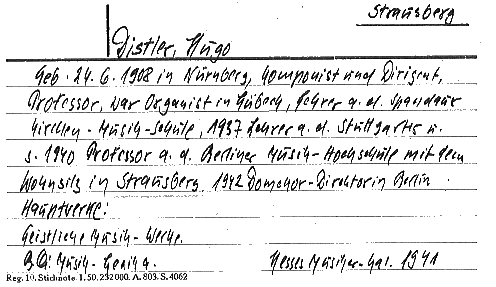 Strausberg
Distler, Hugo
Geb. 24. 6. 1908 in Nürnberg, Komponist und Dirigent,
Professor, war Organist in Lübeck, Lehrer a. d. Spandauer
Kirchen-Musik-Schule, 1937 Lehrer a. d. Stuttgarter u.
s. 1940 Professor a. d. Berliner Musik-Hochschule mit dem
Wohnsitz in Strausberg. 1942 Domchor-Direktor in Berlin.
Hauptwerke:
Geistliche Musik-Werke.
Musik- Hesses Musiker-Kal. 1941
Reg. 10. Stichnote. 1. 50. 232000. A. 803. S. 4062